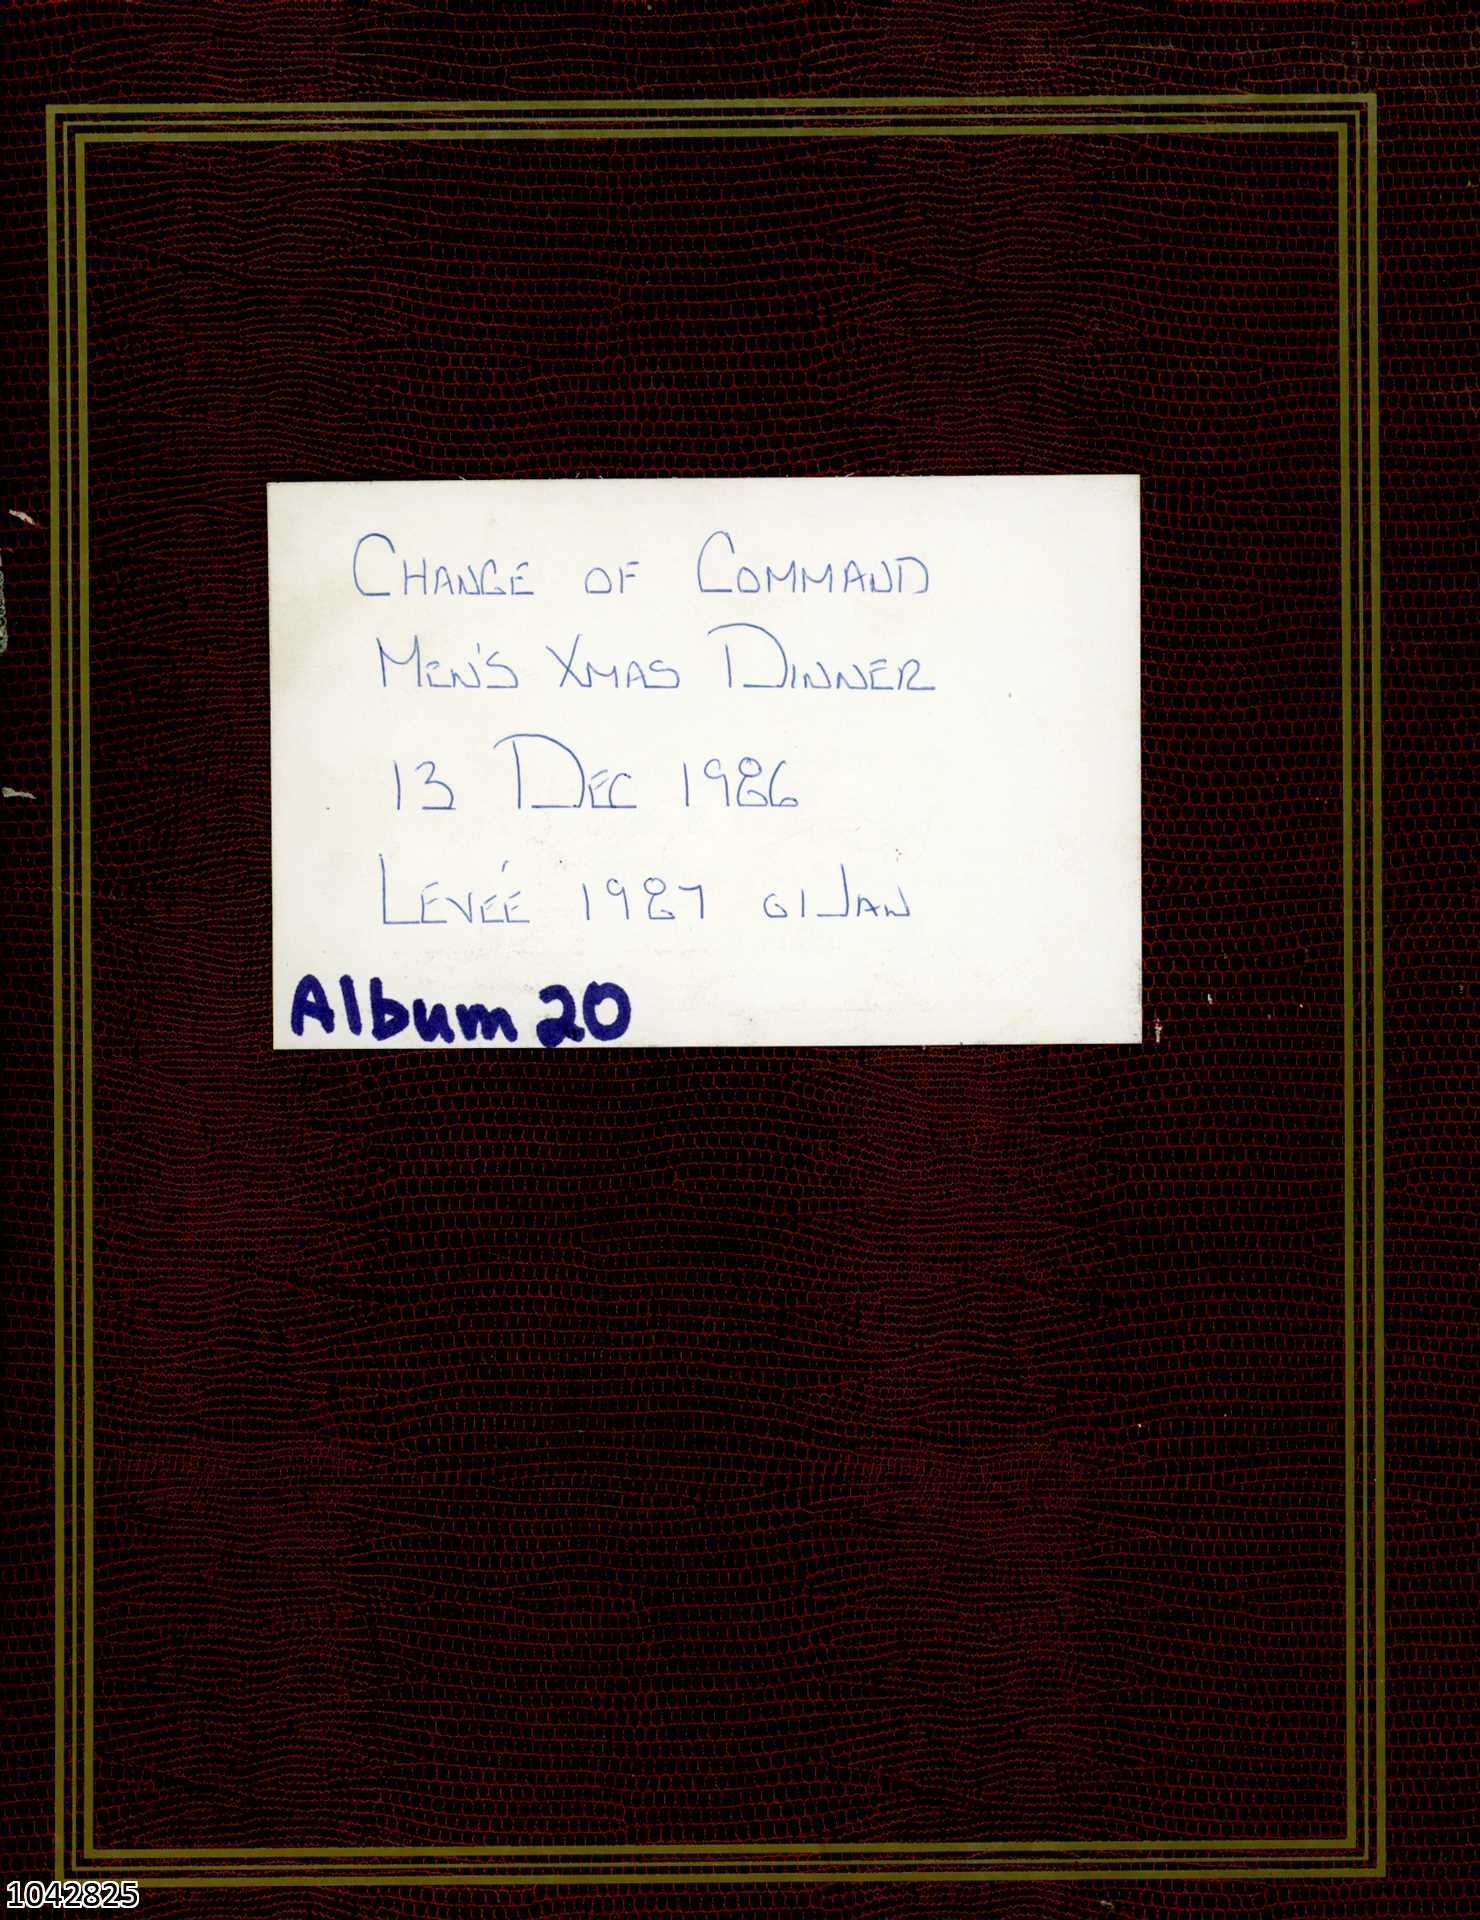 CHANGE OF COMMAND
MEN'S XMAS DINNER
13 DEC 1986
LEVEÉ 1987 01 JAN
Album 20
1042825